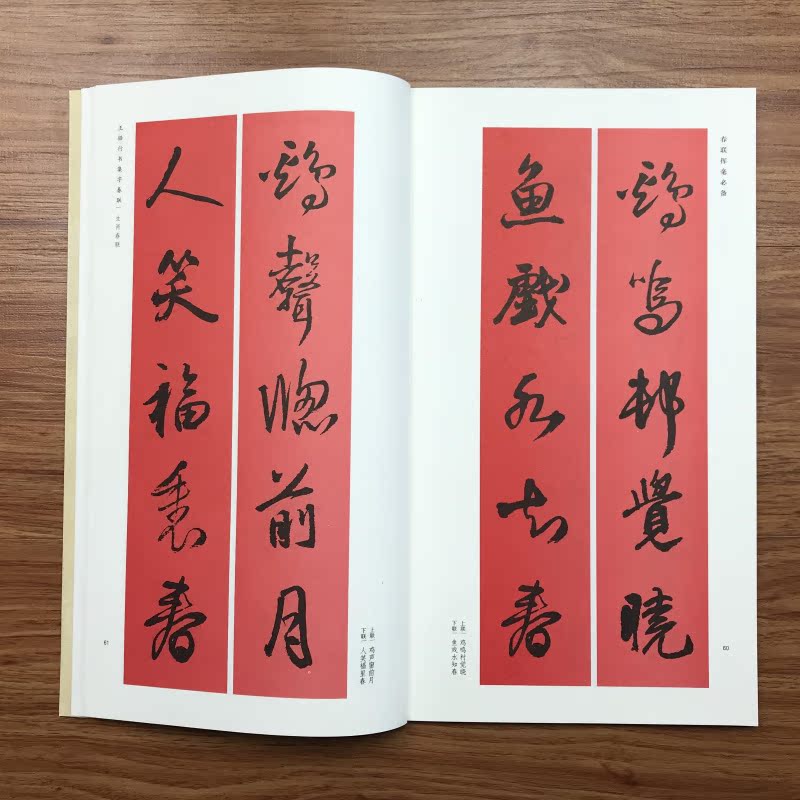 春联挥毫必备
鷄鳴邨覺曉
魚戲水知春
上联｜鸡鸣村觉晓
下联｜鱼戏水知春
60
鷄聲牕前月
人笑福裏春
上联｜鸡声窗前月
下联｜人笑福里春
王铎行书集字春联｜生肖春联
61